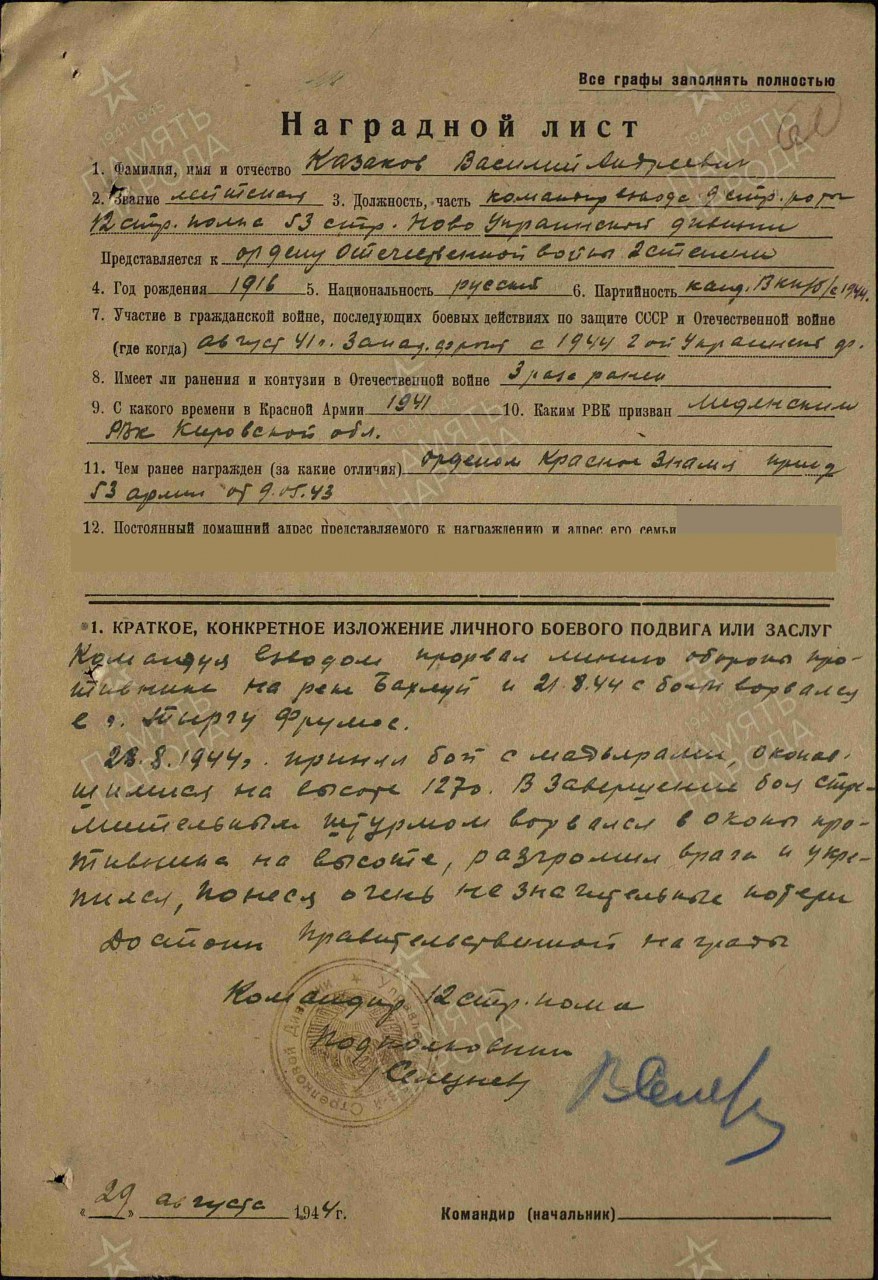 Все графы заполнять полностью
Наградной лист
1. Фамилия, имя и отчество Казаков Василий Андреевич
2. Звание лейтенант 3. Должность, часть командир взвода 9 стр. роты
12 стр. полка 53 стр. Ново Украинской дивизии
Представляется к ордену Отечественной войны 2 степени
4. Год рождения 1916 5. Национальность русский 6. Партийность канд. ВКП/б/ с 1944.
7. Участие в гражданской войне, последующих боевых действиях по защите СССР и Отечественной войне
(где когда) август 41г. Запад. фронт с 1944 2 ой Украинский фр.
8. Имеет ли ранения и контузии в Отечественной войне 3 раза ранен
9. С какого времени в Красной Армии 1941 10. Каким РВК призван
РВК Кировской обл.
11. Чем ранее награжден (за какие отличия) орденом Красное Знамя
53 армии от 9.05.43
12. Постоянный домашний адрес представляемого к награждению и адрес его семьи
1. КРАТКОЕ, КОНКРЕТНОЕ ИЗЛОЖЕНИЕ ЛИЧНОГО БОЕВОГО ПОДВИГА ИЛИ ЗАСЛУГ
Командуя взводом прорвал линию обороны про-
тивника на реке Бахлуй и 21.8.44 с боем ворвался
в г. Тыргу Фрумос.
28.8.1944г. принял бой с мадьярами, окопав-
шимися на высоте 1270. В завершение боя стре-
мительным штурмом ворвался в окопы про-
тивника на высоте, разгромил врага и укре-
пился, понеся очень незначительные потери
Достоин правительственной награды
Командир 12 стр. полка
Подполковник
/Селезнев/
"29" августа 1944г. Командир (начальник)
ПАМЯТЬ НАРОДА
1941-1945